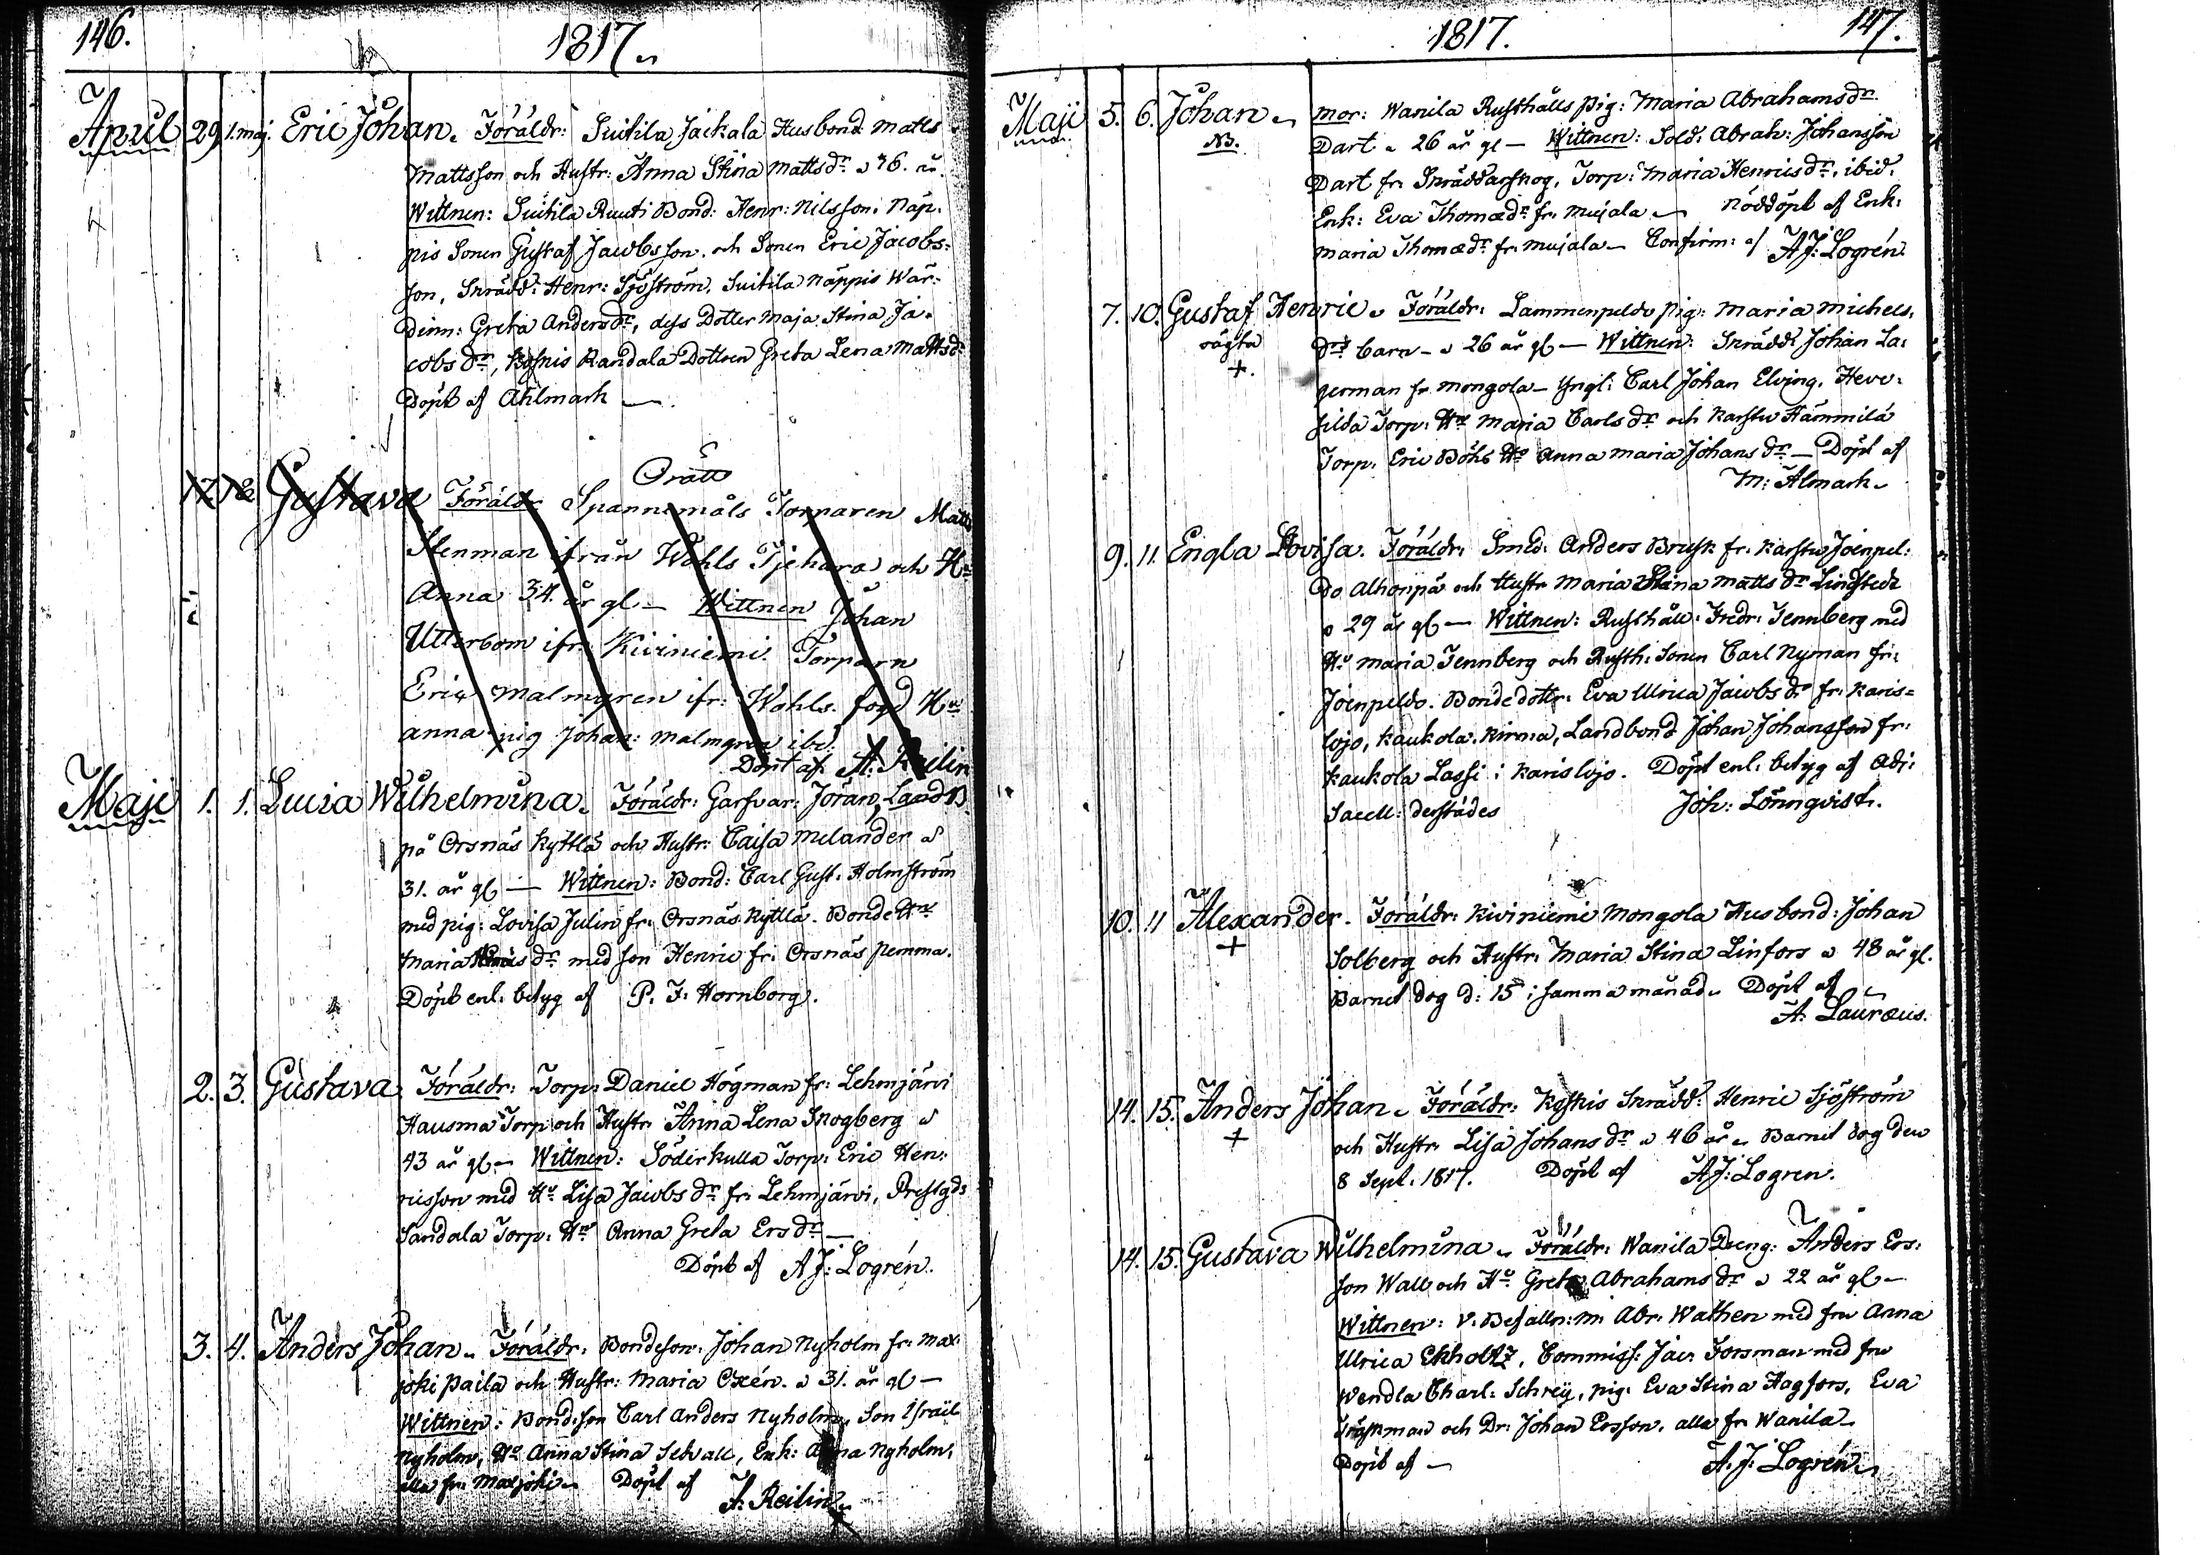 146.
1817.
April 29. 1. maj. Eric Johan. Föräldr: Suitila Jaickala Husbond: Matts
Mattsson och Hustr: Anna Stina Mattsdr. 36. år.
Wittnen: Suitila Ruuti Bond: Henr: Nilsson. Näp-
pis Sonen Gustaf Jacobsson. och Sonen Eric Jacobs-
son, Skrädd: Henr: Sjöström. Suitila Näppis Wär-
dinn: Greta Andersdr, dess Dotter Maja Stina Ja-
cobsdr, Koskis Randala Dottren Greta Lena Mattsdr
Döpt af Ahlmark
Orätt
Gustava Föräldr Spannemåls Torparen Matts
Stenman ifrån Wohls Tjehara och Hu
Anna 34. år gl — Wittnen Johan
Utterbom ifr: Kiviniemi. Torparn
Eric Malmgren ifr: Wohls. fogd Hu
anna pig Johan: Malmgren ibd:
Döpt af A: Reilin
Maji 1. 1. Lucia Wilhelmina. Föräldr: Garfvar: Jöran Land
på Orsnäs Kyttlä och Hustr: Caisa Melander
31. år gl — Wittnen: Bond: Carl Gust: Holmström
med pig: Lovisa Julin fr: Orsnäs Kyttlä. Bonde Hu
Maria dr med son Henric fr: Orsnäs Pemma.
Döpt enl: betyg af P. J: Hornborg.
2. 3. Gustava Föräldr: Torp: Daniel Högman fr: Lehmjärvi
Hausma Torp och Hustr: Anna Lena Skogberg
43 år gl — Wittnen: Söderkulla Torp: Eric Hen-
ricsson med Hu Lisa Jacobsdr fr: Lehmjärvi, Prestgds
Sandala Torp: Hu Anna Greta Ersdr —
Döpt af A J: Logrén.
3. 4. Anders Johan. Föräldr: Bondeson: Johan Nyholm fr: Max-
joki Paila och Hustr: Maria Oxén. 31. år gl —
Wittnen: Bondeson Carl Anders Nyholm, Son Israel
Nyholm, Hu Anna Stina Selvall, Enk: Anna Nyholm,
alla fr: Maxjoki Döpt af
A: Reilin
1817.
147.
Maji 5. 6. Johan Mor: Wanila Rusthålls Pig: Maria Abrahamsdr
NB. Dart 26 år gl — Wittnen: Sold: Abrah: Johansson
Dart fr: Skräddarskog, Torp: Maria Henricsdr, ibid.
Enk: Eva Thomædr fr: Mujala nöddöpt af Enk:
Maria Thomædr fr: Mujala Confirm: af A J: Logrén
7. 10. Gustaf Henric Föräldr: Lammenpeldo Pig: Maria Michels-
oägta drs barn 26 år gl — Wittnen: Skrädd: Johan La-
+. german fr: Mongola Yngl: Carl Johan Elving. Hevo-
silda Torp: Hu Maria Carlsdr och Karstu Hämmilä
Torp: Eric Böhs Hu Anna Maria Johansdr — Döpt af
M: Almark
9. 11. Engla Lovisa. Föräldr: Smed: Anders Brusk fr: Karstu Joenpel-
do Alhonpä och Hustr Maria Stina Mattsdr Lindstedt
29 år gl — Wittnen: Rusthåll: Fredr: Tennberg med
Hu Maria Tennberg och Rusth: Sonen Carl Nyman fr:
Joenpeldo. Bondedottr: Eva Ulrica Jacobsdr fr: Karis-
lojo, Kaukola. Kirma, Landbond Johan Johansson fr:
Kaukola Lassi i Karislojo. Döpt enl: betyg af Adj:
Sacell: derstädes Joh: Lönnqvist.
10. 11 Alexander. Föräldr: Kiviniemi Mongola Husbond: Johan
+ Solberg och Hustr: Maria Stina Linfors 48 år gl.
Barnet dog d: 15 i samma månad. Döpt af
A: Lauræus.
14. 15. Anders Johan. Föräldr: Koskis Skrädd: Henric Sjöström
+ och Hustr: Lisa Johansdr 46 år Barnet dog den
8 Sept. 1817. Döpt af A J: Logren.
14. 15. Gustava Wilhelmina Föräldr: Wanila Dreng: Anders Ers-
son Wall och Hu Greta Abrahamsdr 22 år gl —
Wittnen: V. Befalln: m: Abr: Wathen med fru Anna
Ulrica Ekholtz, Commiss: Jac: Forsman med fru
Wendla Charl: Schreij, pig: Eva Stina Hagfors, Eva
Träskman och Dr: Johan Ersson. alla fr: Wanila
Döpt af — A. J: Logrén